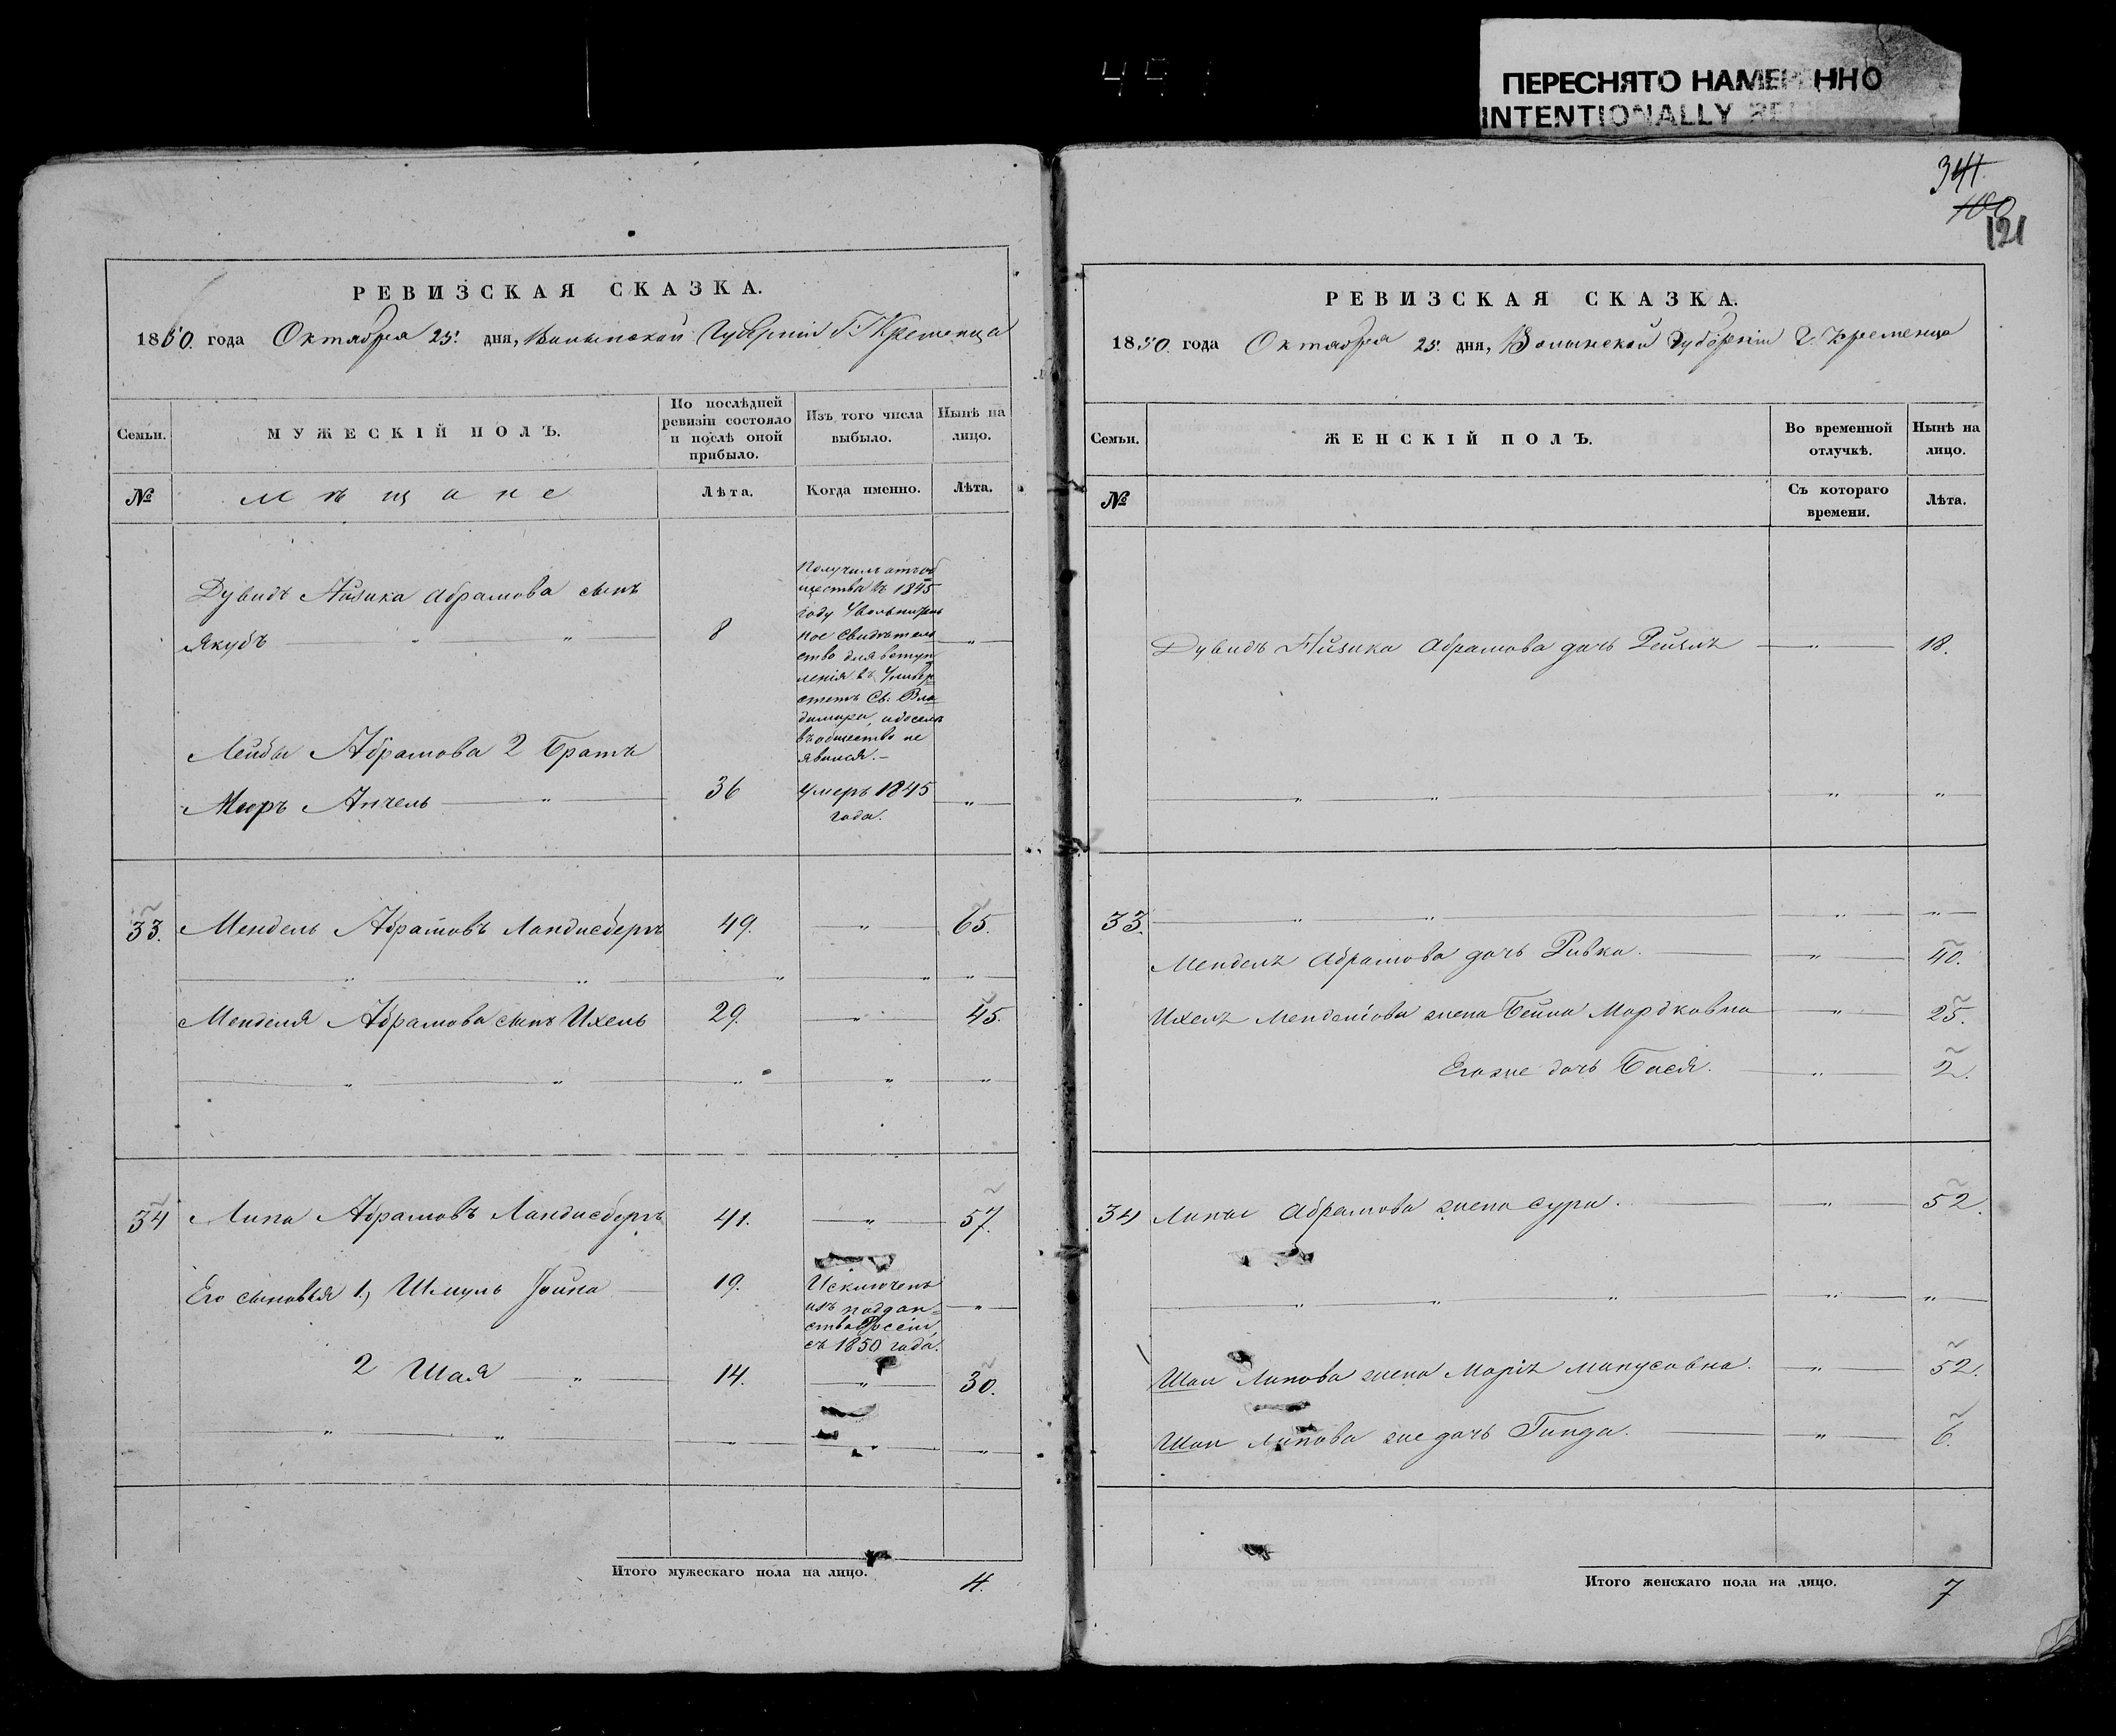 ПЕРЕСНЯТО НАМЕРЕННО
INTENTIONALLY
341
100
121
РЕВИЗСКАЯ СКАЗКА.
1850. года Октября 25. дня, Волынской Губерніи Г. Кременца
Семьи.
МУЖЕСКІЙ ПОЛЪ.
По послѣдней
ревизіи состояло
и послѣ оной
прибыло.
Изъ того числа
выбыло.
Нынѣ на
лицо.
№
Мѣщане
Лѣта.
Когда именно.
Лѣта.
Дувидъ Айзика Абрамова сынъ
Якубъ — " — " — 8 "
Получилъ отъ об
щества въ 1845
году Увольнитель
ное Свидѣтель
ство для вступ
ленія въ Универ
ситетъ Св: Вла
димира, и доселѣ
въ общество не
явился.—
Лейбы Абрамова 2 Братъ
Меръ Анчель — " — 36 Умеръ 1845 — " —
года.
33. Мендель Абрамовъ Ландисбергъ 49. — " — 65.
— " — " — " — " — " —
Менделя Абрамова сынъ Ихель 29. — " — 45.
— " — " — " — " — " —
34 Липа Абрамовъ Ландисбергъ 41. — " — 57.
Его сыновья 1, Шмуль Іойна 19. Исключенъ
изъ поддан= — " —
ства Россіи
съ 1850 года.
2 Шая — " — 14. — " — 30.
— " — " — " — " — " —
Итого мужескаго пола на лицо. 4.
РЕВИЗСКАЯ СКАЗКА.
1850. года Октября 25. дня, Волынской Губерніи Г. Кременца
Семьи.
ЖЕНСКІЙ ПОЛЪ.
Во временной
отлучкѣ.
Нынѣ на
лицо.
№
Съ котораго
времени.
Лѣта.
Дувидъ Айзика Абрамова дочь Рейзля — " — 18.
— " — " — " — " —
33. — " — " — " — " —
Менделя Абрамова дочь Ривка. — " — 40.
Ихеля Менделіова жена Бейла Мордковна — " — 25.
Его же дочь Бася. — " — 2.
34 Липы Абрамова жена Сура. — " — 52.
— " — " — " — " — " —
Шаи Липова жена Марія — " — 52.
Шаи Липова же дочь Гинда. — " — 6.
Итого женскаго пола на лицо. 7